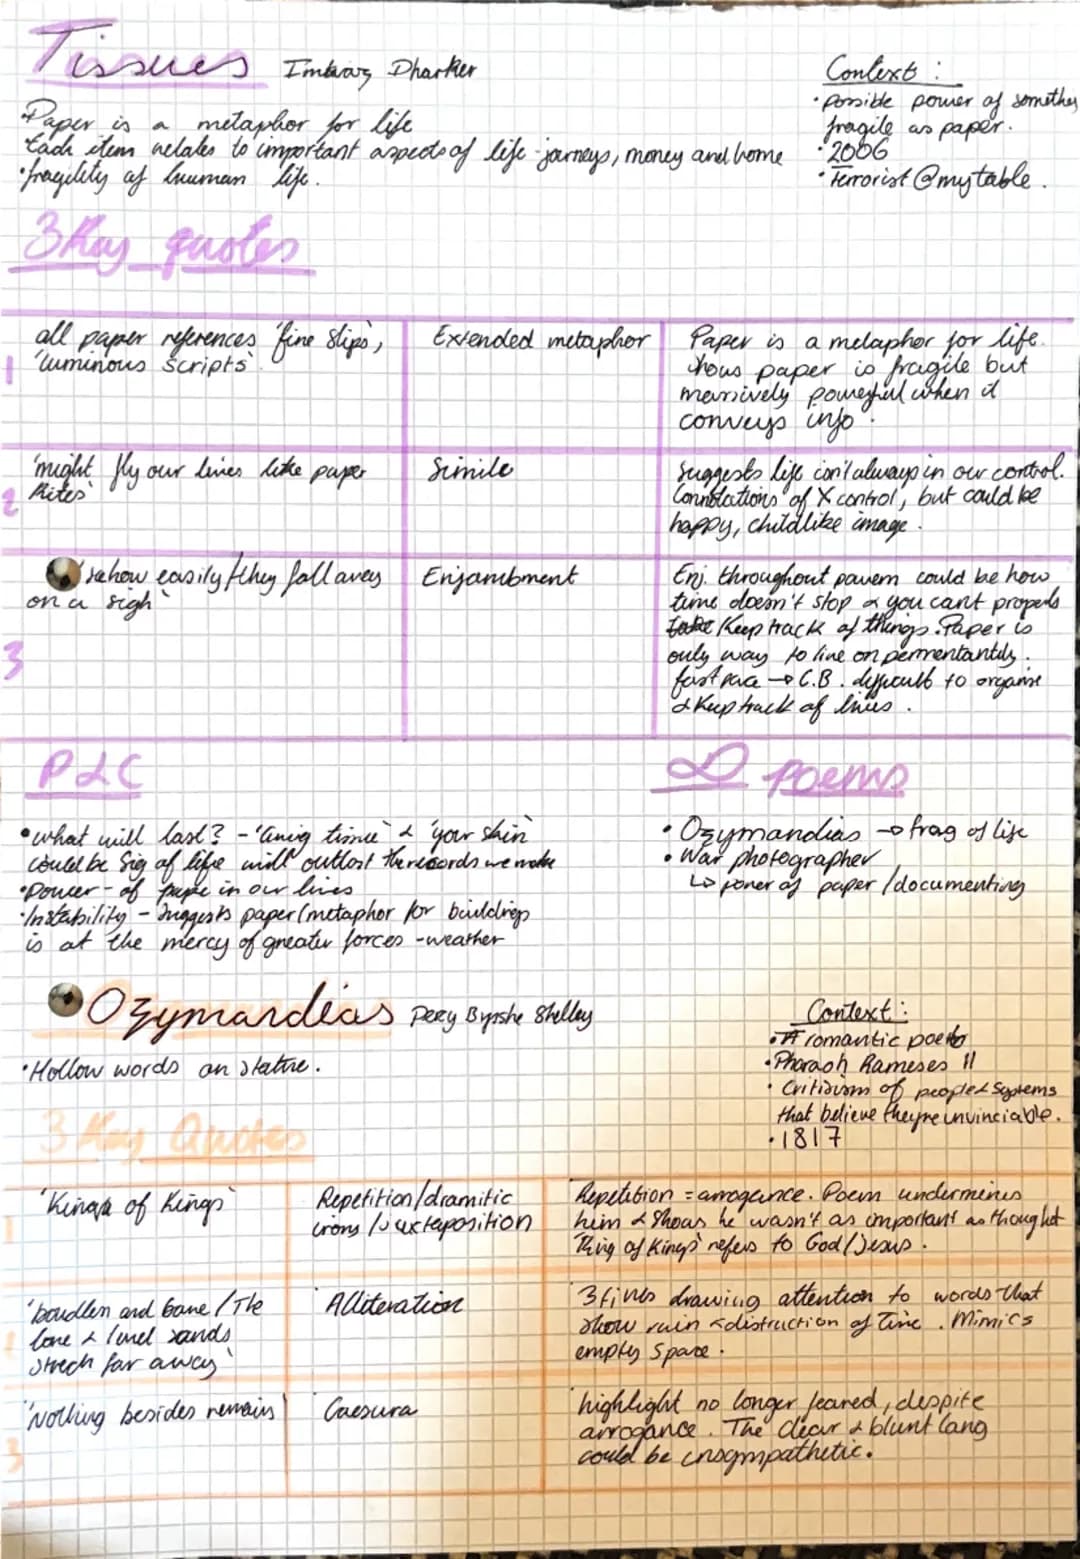 Tissues Imtiarz Dharker
Context :
• possible power of somethin
fragile as paper.
• 2006
• Terrorist @ my table.
• Paper is a metaphor for life
Each item relates to important aspects of life - journeys, money and home
• fragility of human life.
3 Key quotes
1
all paper references 'fine slips',
'luminous scripts'.
Extended metaphor
Paper is a metaphor for life.
Shows paper is fragile but
massively powerful when it
conveys info.
2
'might fly our lives like paper
kites'
Simile
Suggests life isn't always in our control.
Connotations of X control, but could be
happy, childlike image.
3
how easily / they fall away
on a sigh'
Enjambment
Enj. throughout could be how
time doesn't stop & you cant properly
keep track of things. Paper is
only way to live on permentantly.
fast pace → C.B. difficult to organise
& keep track of lives.
P&C
• what will last? - 'living tissue' & 'your skin'
could be sig of life will outlast the records we make
• Power - of in our lives
• Instability - suggests paper (metaphor for buildings
is at the mercy of greater forces - weather
poems
• Ozymandias → frag of life
• War photographer
↳ power of paper / documenting
Ozymandias Percy Byrshe Shelley
Context :
• romantic poet
• Pharaoh Rameses II
• Critisism of people & systems
that believe theyre invinciable.
• 1817
• Hollow words on statue.
3 Key Quotes
1
'King of Kings'
Repetition / dramitic
irony / juxtaposition
Repetition = arrogance. Poem undermines
him & shows he wasn't as important as thought
'King of Kings' refers to God / Jesus.
'boudless and bare / The
lone & level sands
strech far away'
Alliteration
3 drawing attention to words that
show ruin & distruction of Time. Mimics
empty space.
3
'Nothing besides remains'
Caesura
highlight no longer feared, despite
arrogance. The clear & blunt lang
could be unsympathetic.